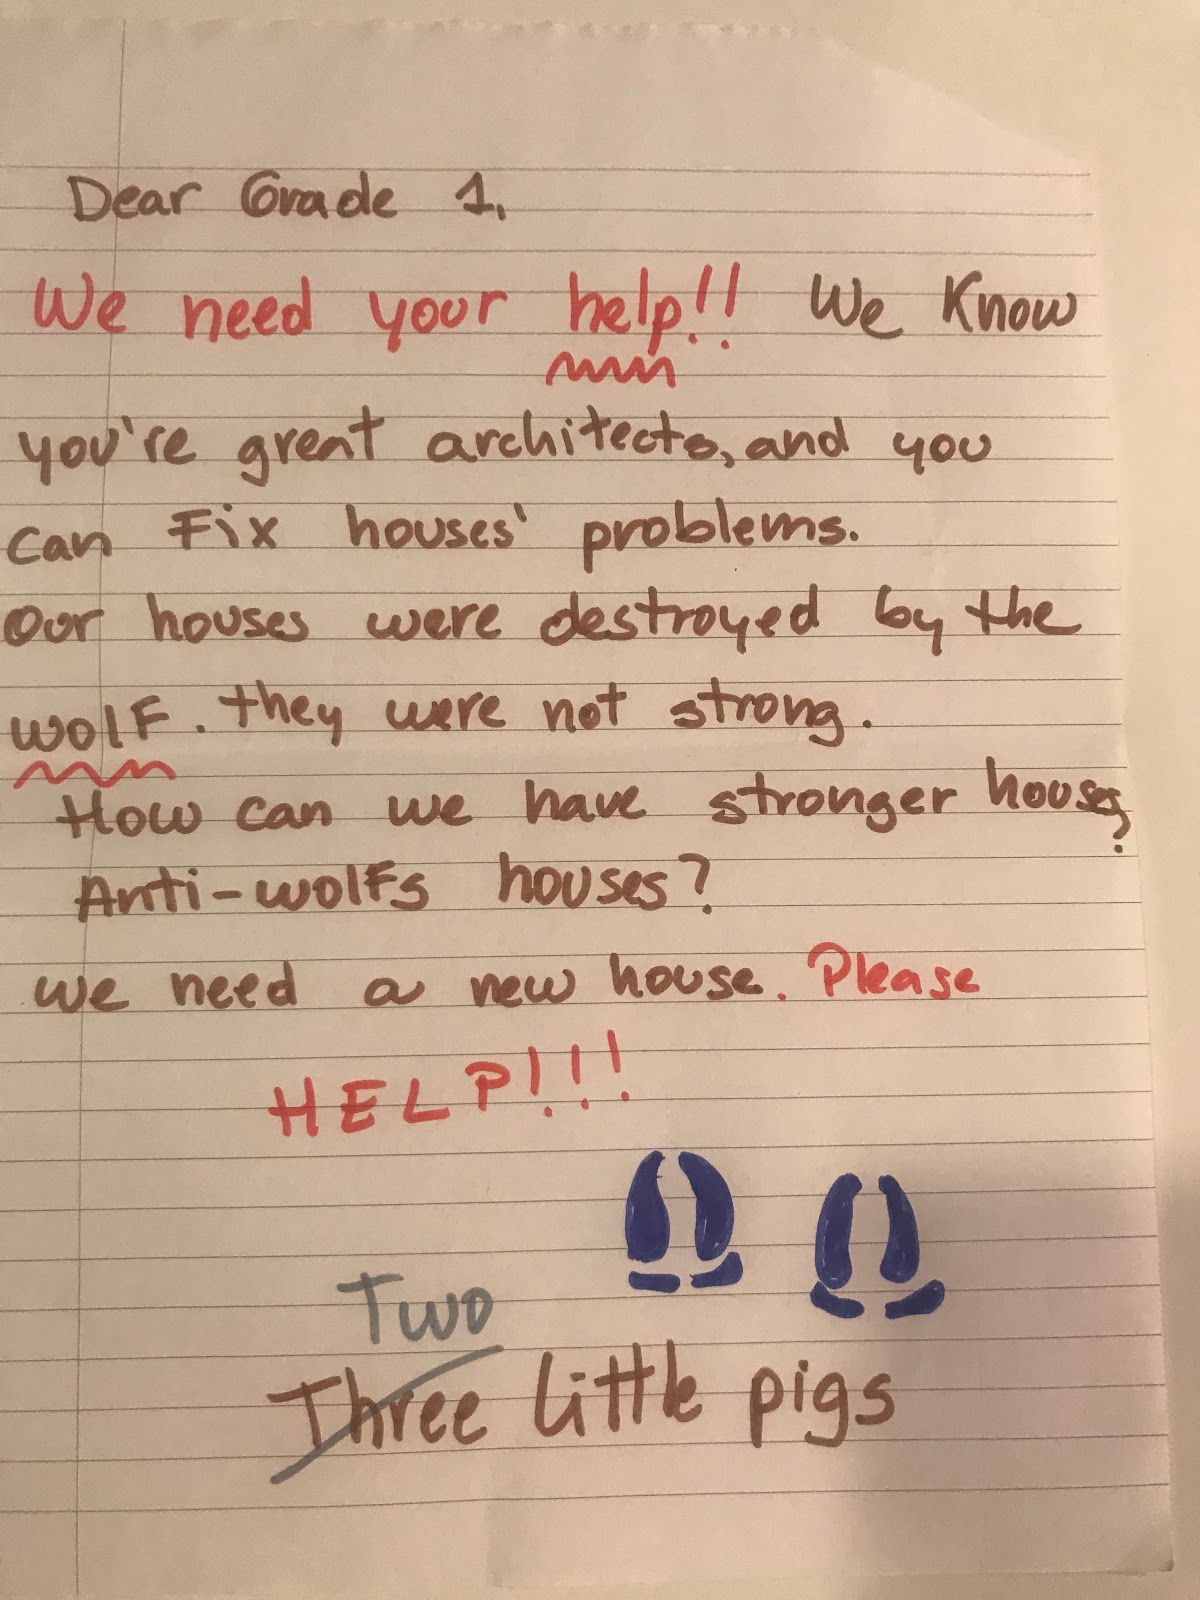 Dear Grade 1,
We need your help!! We Know
you're great architects, and you
can Fix houses' problems.
Our houses were destroyed by the
wolf. they were not strong.
How can we have stronger houses?
Anti-wolfs houses?
we need a new house. Please
HELP!!!
Two
Three little pigs